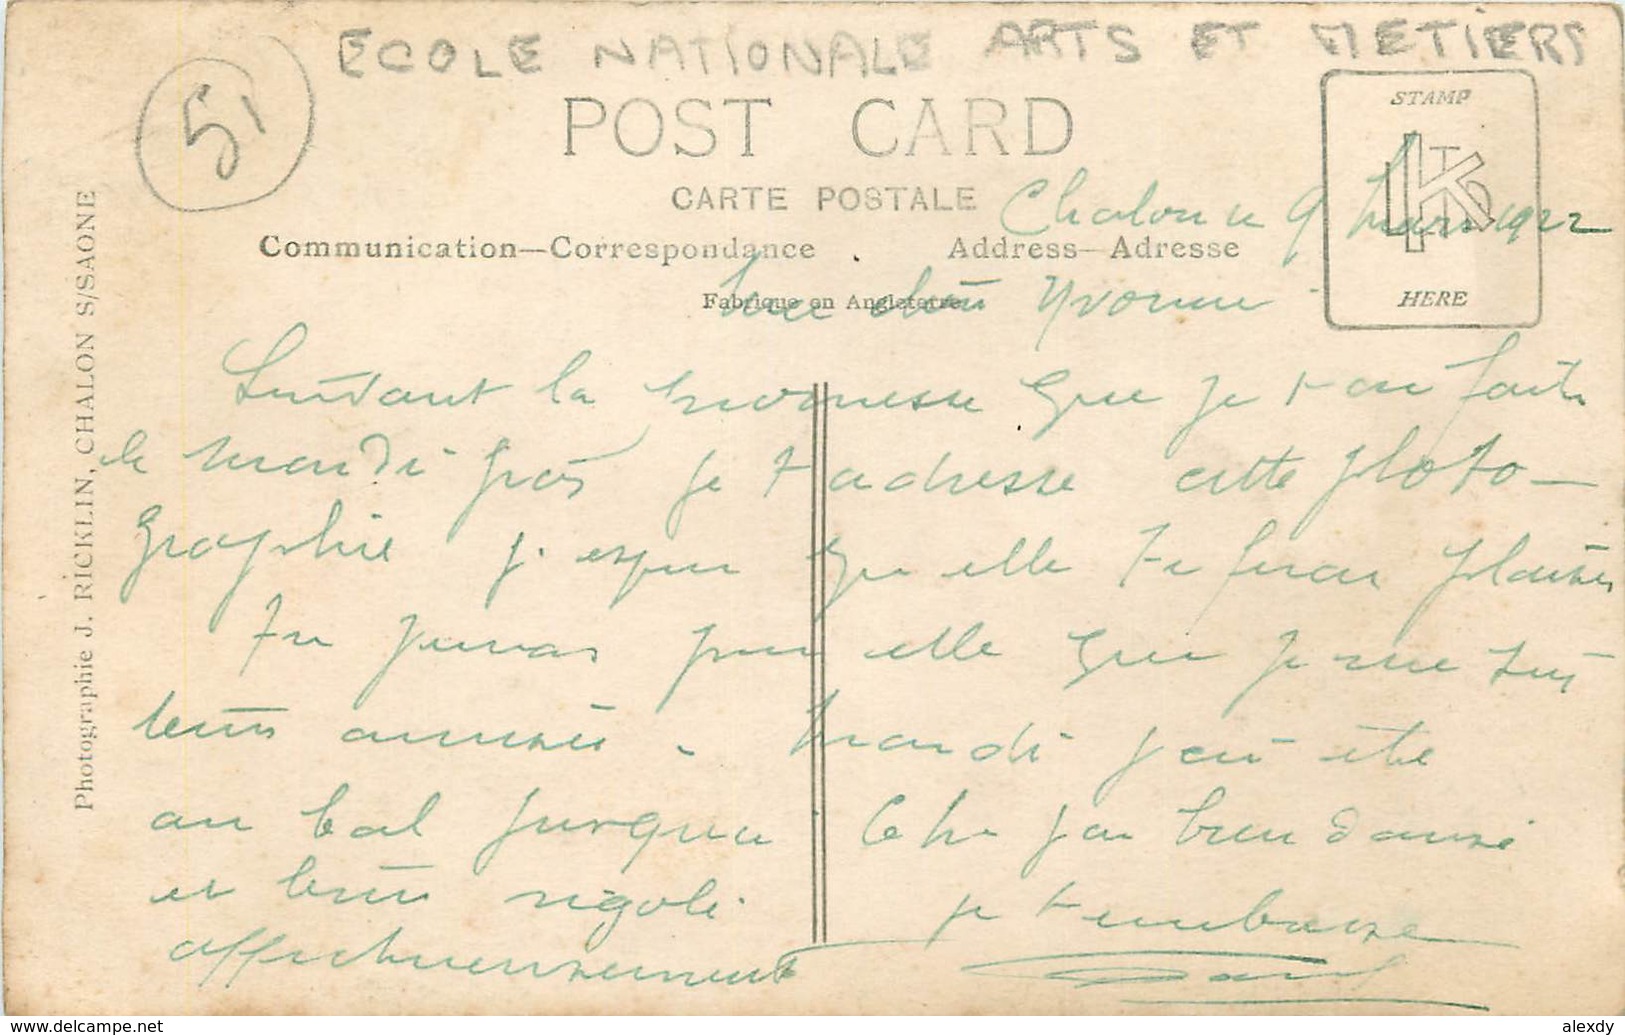 ECOLE NATIONALE ARTS ET METIERS
51
POST CARD
STAMP
CARTE POSTALE
Chalon le 9 Mars 1922
Communication—Correspondance
Address—Adresse
HERE
Fabrique en Angleterre
Ma chère Yvonne
Suivant la promesse que je t'ai faite
le mardi gras je t'adresse cette photo—
graphie j'espère qu'elle te fera plaisir
Tu verras par elle que je me suis
bien amusé. Mardi j'ai été
au bal jusqu'a 6h j'ai bien dansé
et bien rigolé. je t'embrasse
affectueusement
Photographie J. RICKLIN, CHALON S/SAONE
alexdy
www.delcampe.net